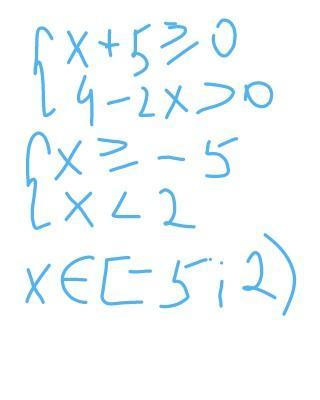 { x + 5 ≥ 0
{ 4 - 2x > 0
{ x ≥ - 5
{ x < 2
x ∈ [-5; 2)